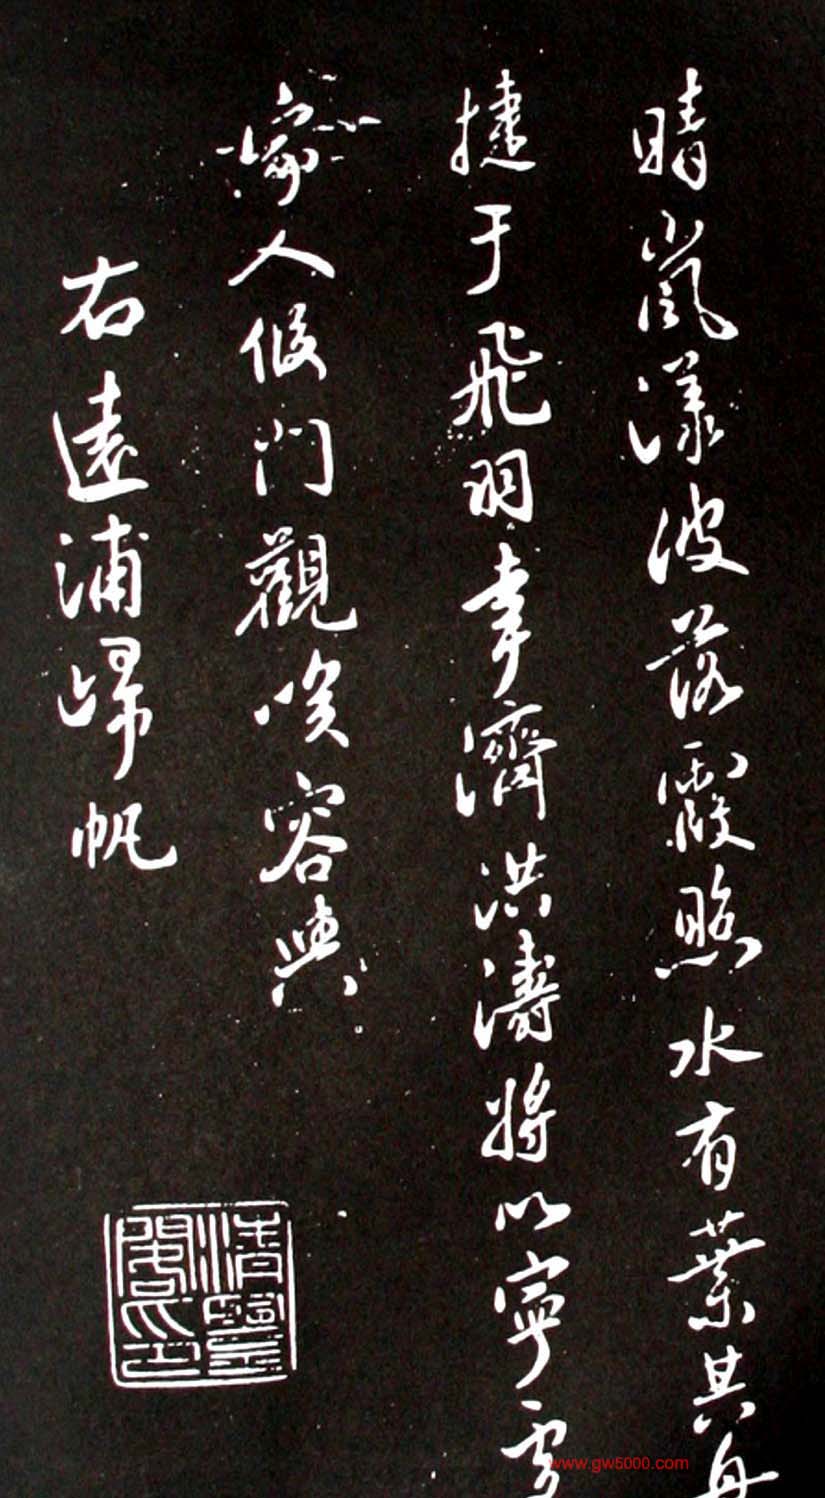 晴嵐漾波落霞照水有葉其舟
捷于飛羽幸濟洪濤將以寧處
家人候門觀咲容與
右遠浦歸帆
www.gw5000.com